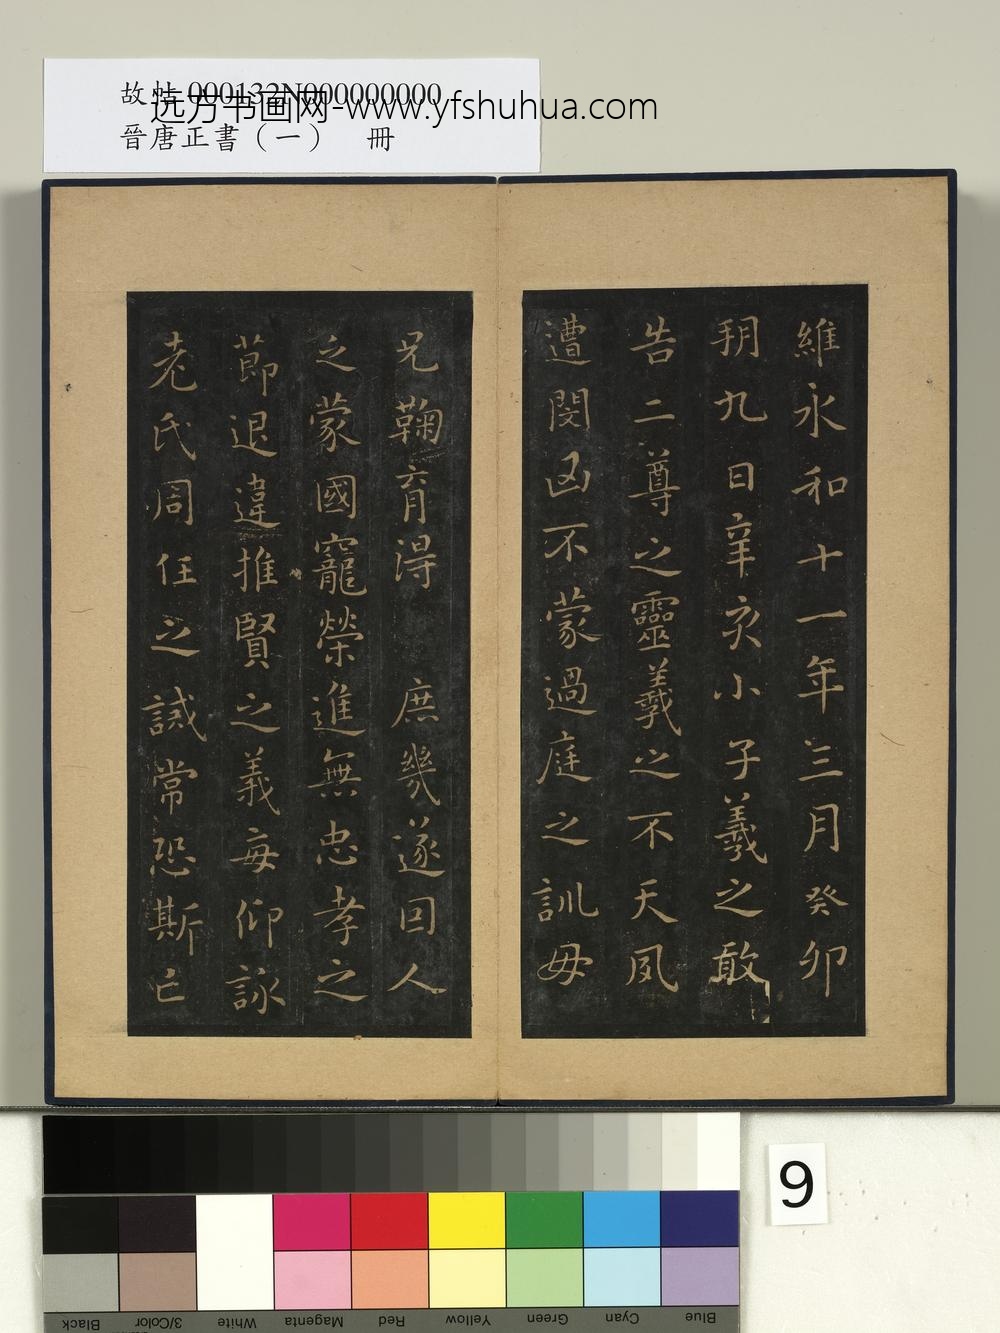 故帖 000132N000000000
远方书画网-www.yfshuhua.com
晉唐正書（一） 冊
維永和十一年三月癸卯
朔九日辛亥小子羲之敢
告二尊之靈羲之不天夙
遭閔凶不蒙過庭之訓母
兄鞠育得 庶幾遂因人
之蒙國寵榮進無忠孝之
節退違推賢之義每仰詠
老氏周任之誡常恐斯亡
9
Black 3/Color White Magenta Red Yellow Green Cyan Blue